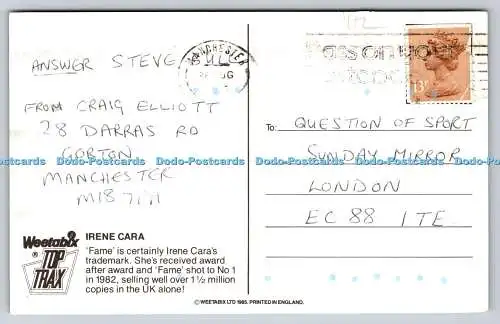 ANSWER STEVE
FROM CRAIG ELLIOTT
28 DARRAS RD
GORTON
MANCHESTER
M18
Weetabix
TOP
TRAX
IRENE CARA
'Fame' is certainly Irene Cara's
trademark. She's received award
after award and 'Fame' shot to No 1
in 1982, selling well over 1½ million
copies in the UK alone!
MANCHESTER
Pass on your
13P
To:
QUESTION OF SPORT
SUNDAY MIRROR
LONDON
EC 88 1TE
© WEETABIX LTD 1985. PRINTED IN ENGLAND.
Dodo-Postcards Dodo-Postcards Dodo-Postcards Dodo-Postcards Dodo-Postcards